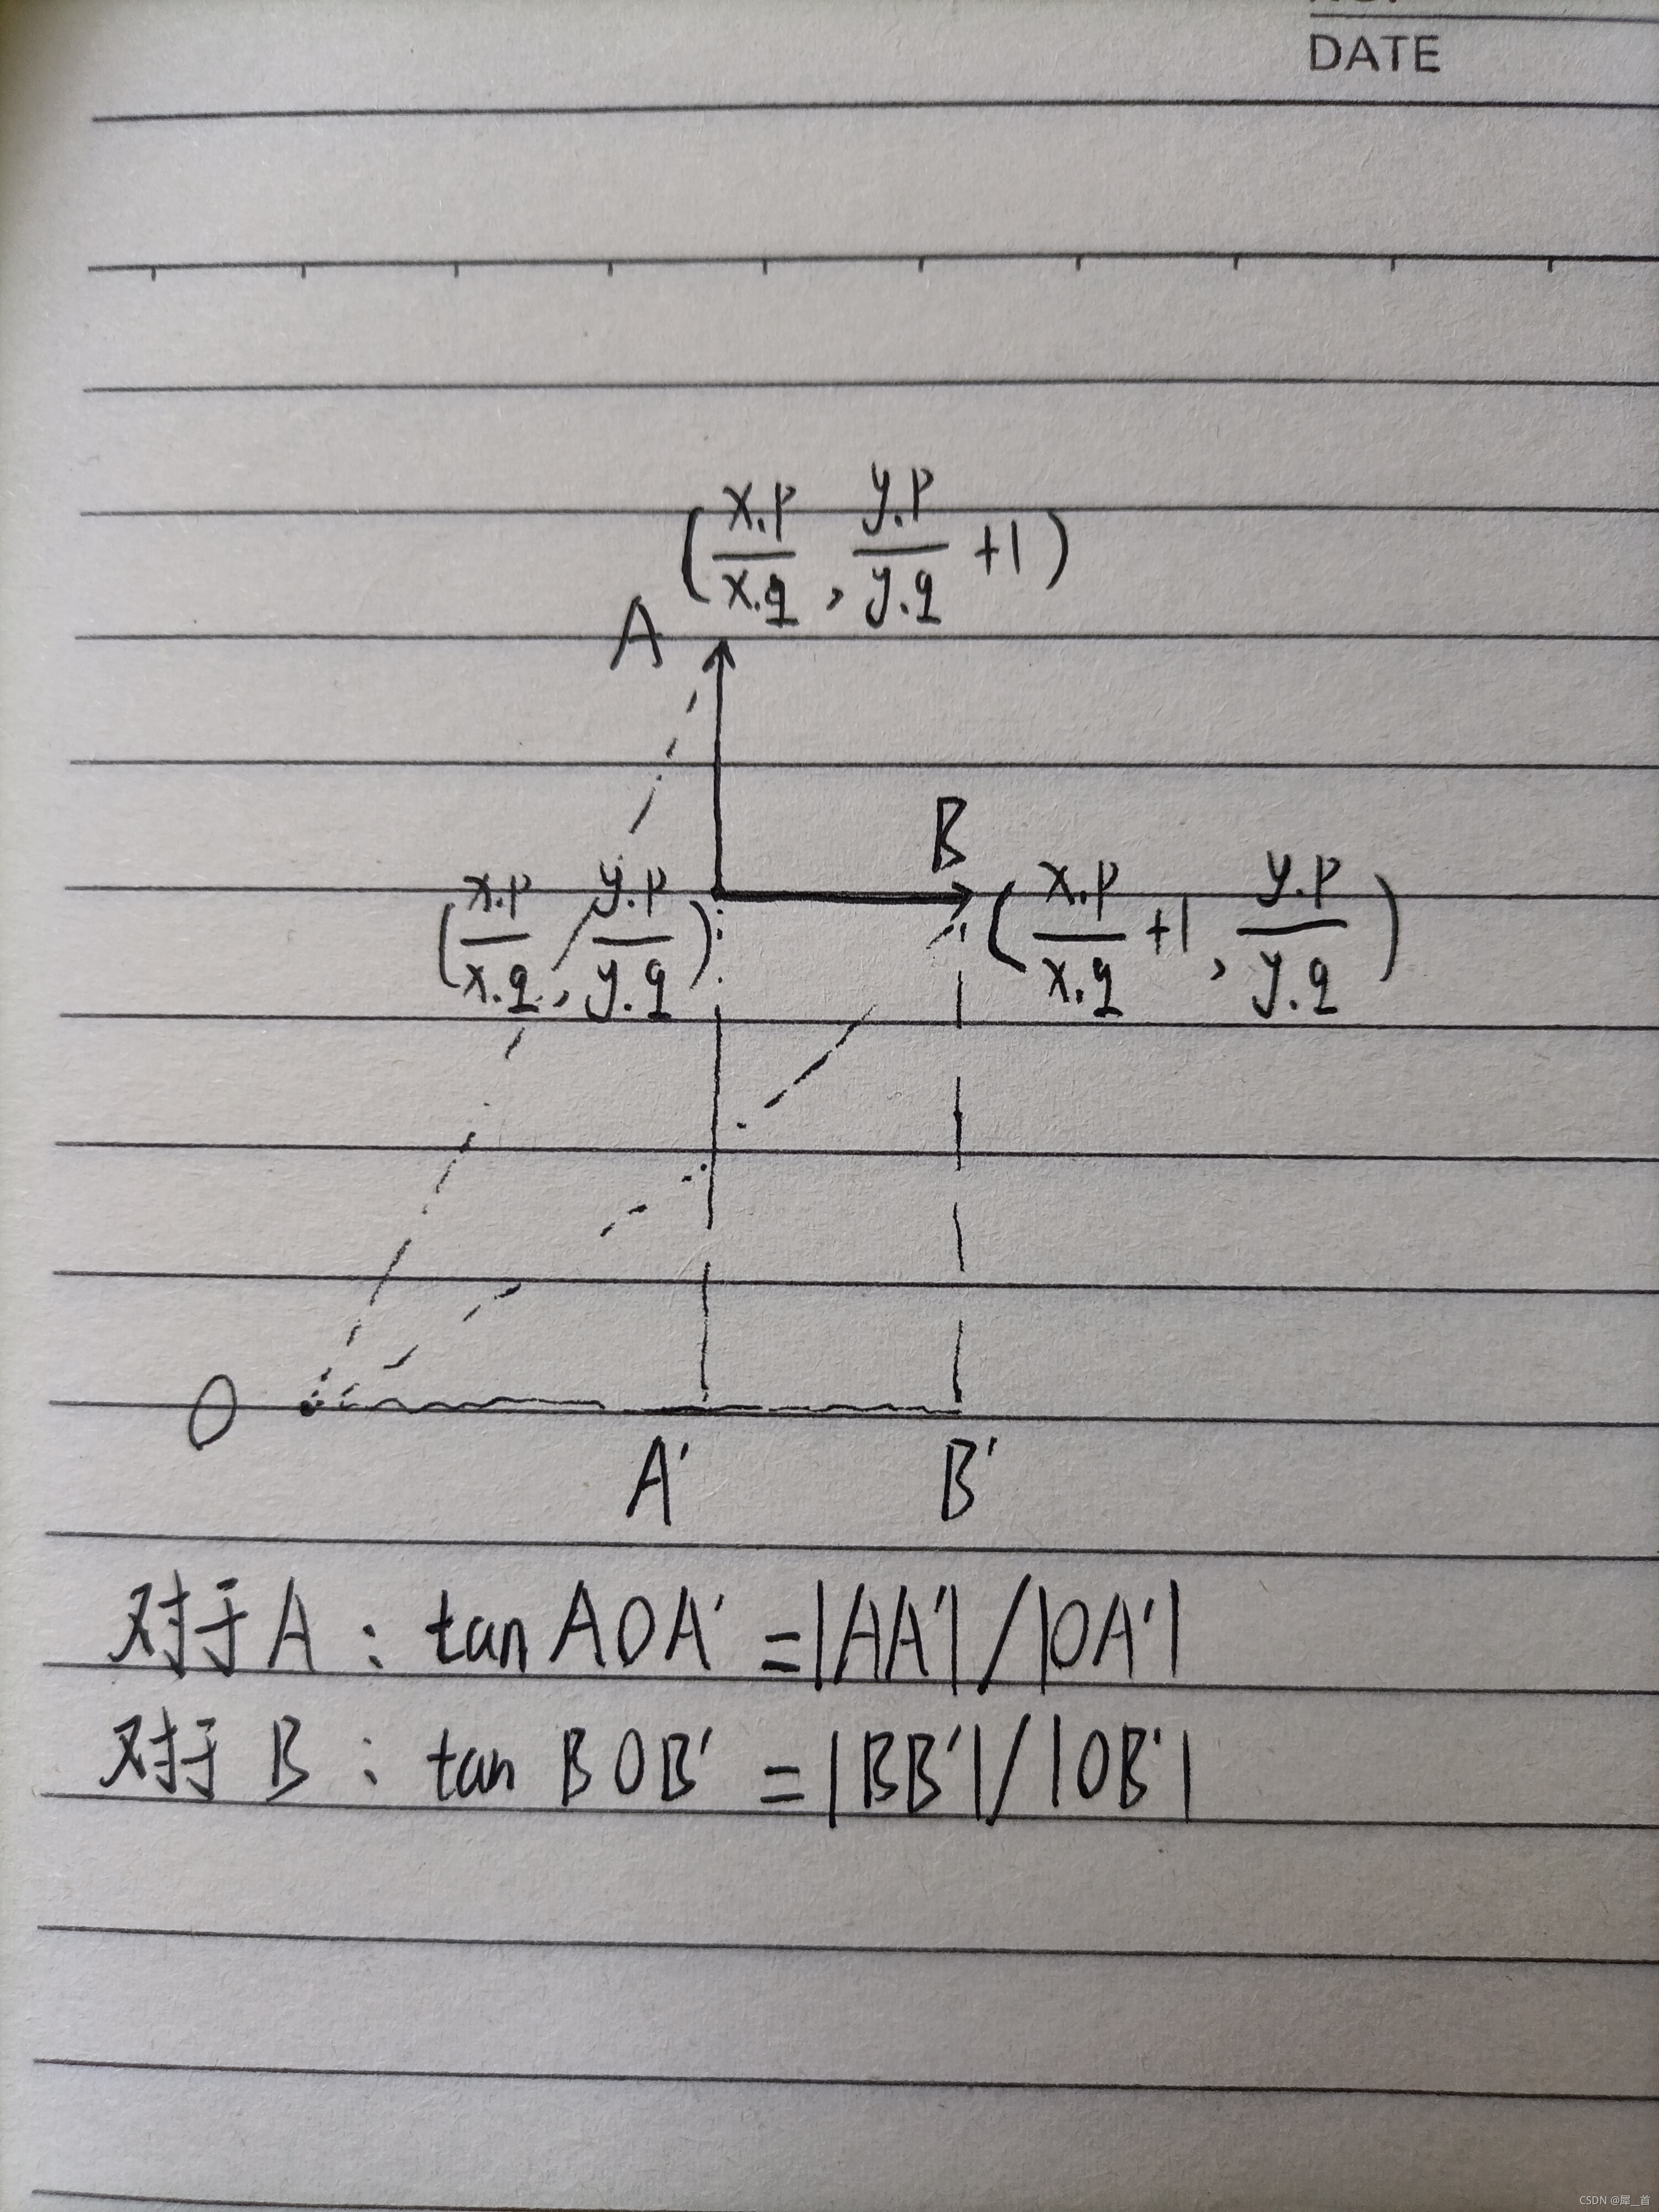 DATE
(x.p/x.q, y.p/y.q +1)
A
B
(x.p/x.q, y.p/y.q)
(x.p/x.q +1, y.p/y.q)
O
A' B'
对于A：tan AOA' = |AA'| / |OA'|
对于B：tan BOB' = |BB'| / |OB'|
CSDN @犀__首